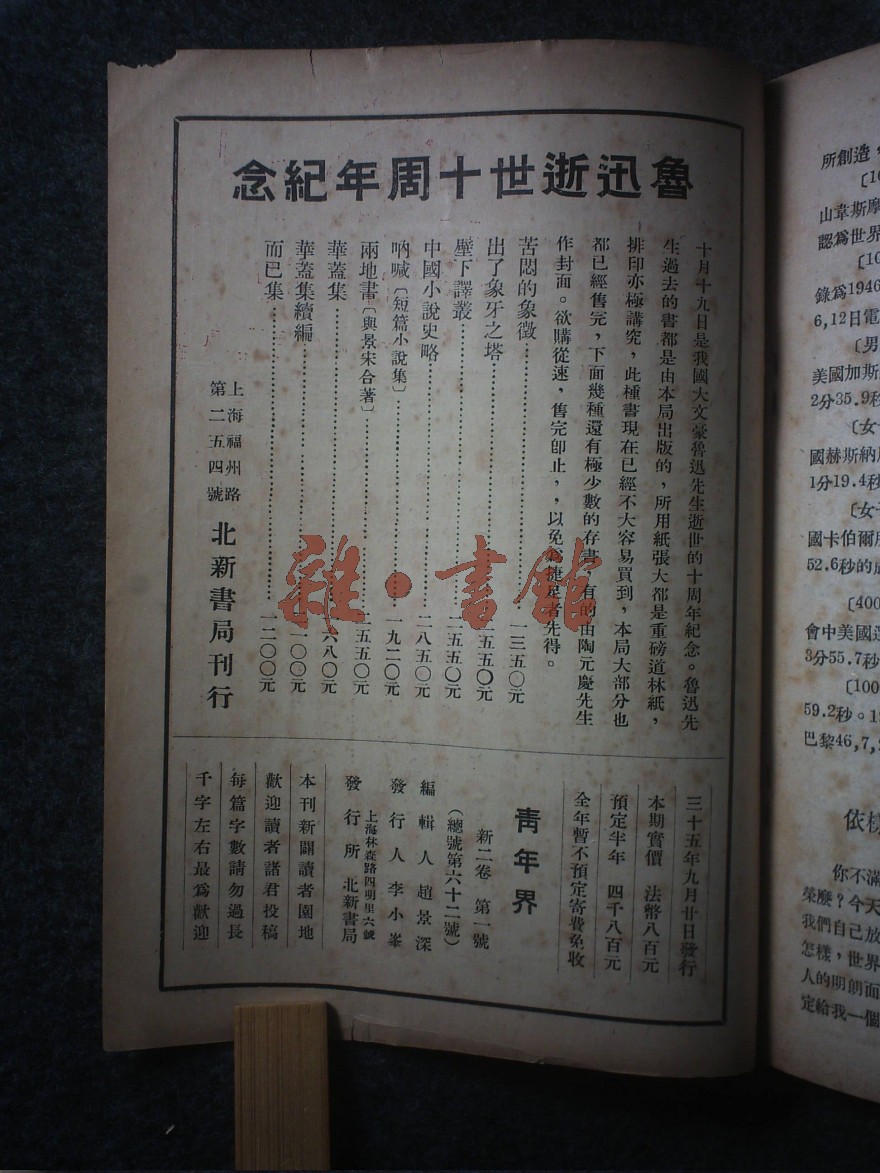 魯迅逝世十周年紀念
十月十九日是我國大文豪魯迅先生逝世的十周年紀念。魯迅先
生過去的書都是由本局出版的，所用紙張大都是重磅道林紙，
排印亦極講究，此種書現在已經不大容易買到，本局大部分也
都已經售完，下面幾種還有極少數的存書，有的由陶元慶先生
作封面。欲購從速，售完卽止，以免爲捷足者先得。
苦悶的象徵……一三五〇元
出了象牙之塔……五五〇元
壁下譯叢……二五五〇元
中國小說史略……二八五〇元
吶喊〔短篇小說集〕……一九二〇元
兩地書〔與景宋合著〕……二五五〇元
華蓋集……六八〇元
華蓋集續編……一〇〇元
而已集……一二〇〇元
上海福州路
第二五四號
北新書局刊行
三十五年九月廿日發行
本期實價　法幣八百元
預定半年　四千八百元
全年暫不預定寄費免收
靑年界
新二卷　第一號
（總號第六十二號）
編輯人　趙景深
發行人　李小峯
上海林森路四明里六號
發行所　北新書局
本刊新闢讀者園地
歡迎讀者諸君投稿
每篇字數請勿過長
千字左右最爲歡迎
所創造，
〔10
山韋斯摩
認爲世界
〔10
錄爲1946
6,12日電
〔男
美國加斯
2分35.9秒
〔女
國赫斯納
1分19.4秒
〔女
國卡伯爾
52.6秒的
〔400
會中美國
3分55.7秒
〔100
59.2秒。1
巴黎46,7,
依樣
你不滿
榮麼？今天
我們自己放
怎樣，世界
人的明朗面
定給我一個
雜·書館